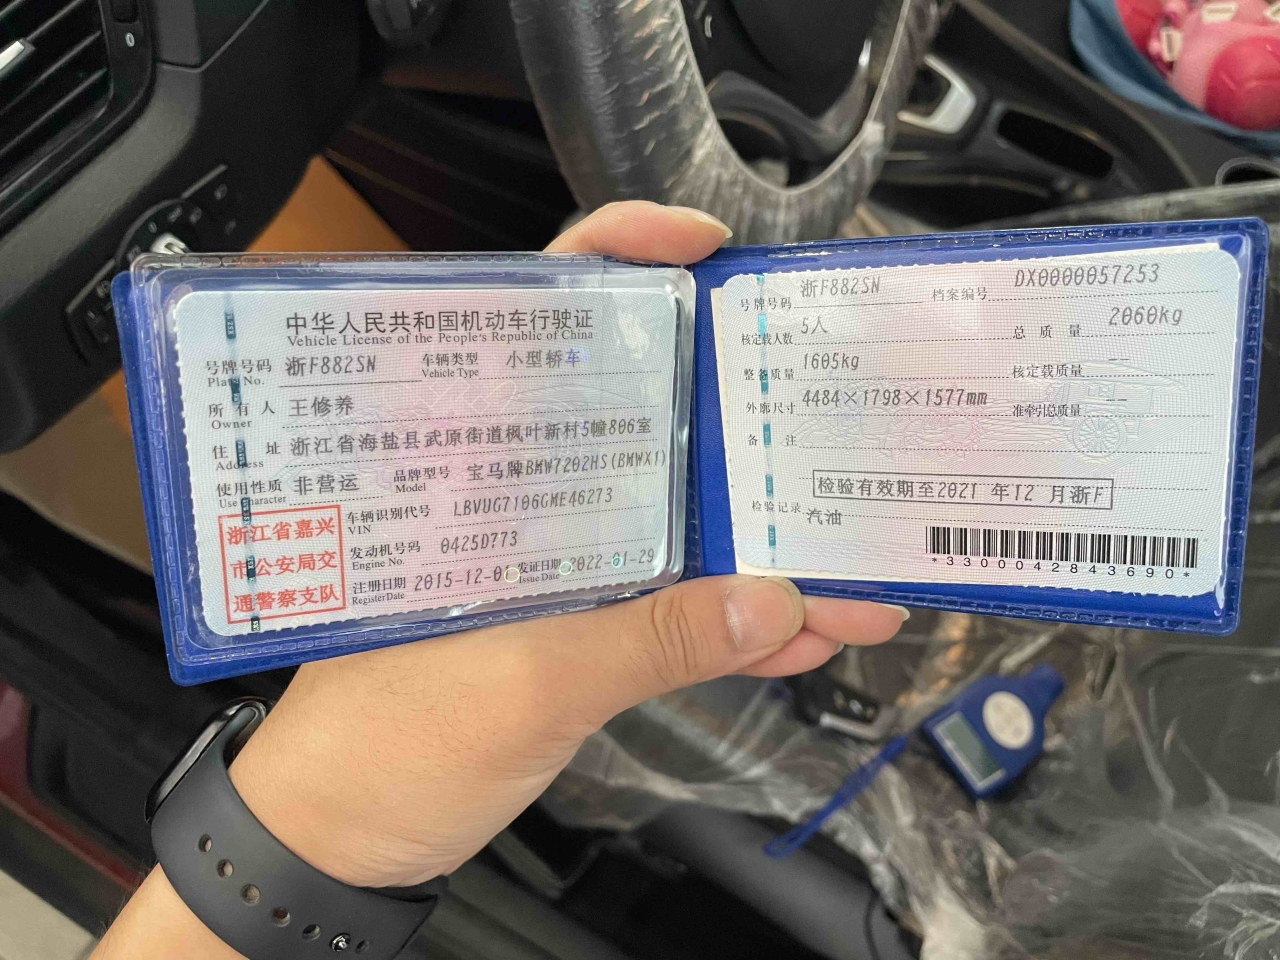 中华人民共和国机动车行驶证
Vehicle License of the People's Republic of China
号牌号码 浙F882SN 车辆类型 小型轿车
Plate No. Vehicle Type
所有人 王修养
Owner
住址 浙江省海盐县武原街道枫叶新村5幢806室
Address
使用性质 非营运 品牌型号 宝马牌BMW7202HS(BMWX1)
Use Character Model
浙江省嘉兴
市公安局交
通警察支队
车辆识别代号 LBVUG7106GME46273
VIN
发动机号码 0425D773
Engine No.
注册日期 2015-12-0 发证日期 2022-01-29
Register Date Issue Date
号牌号码 浙F882SN 档案编号 DX0000057253
核定载人数 5人 总质量 2060kg
整备质量 1605kg 核定载质量 --
外廓尺寸 4484×1798×1577mm 准牵引总质量 --
备注
检验有效期至2021 年12 月浙F
检验记录 汽油
*3300042843690*